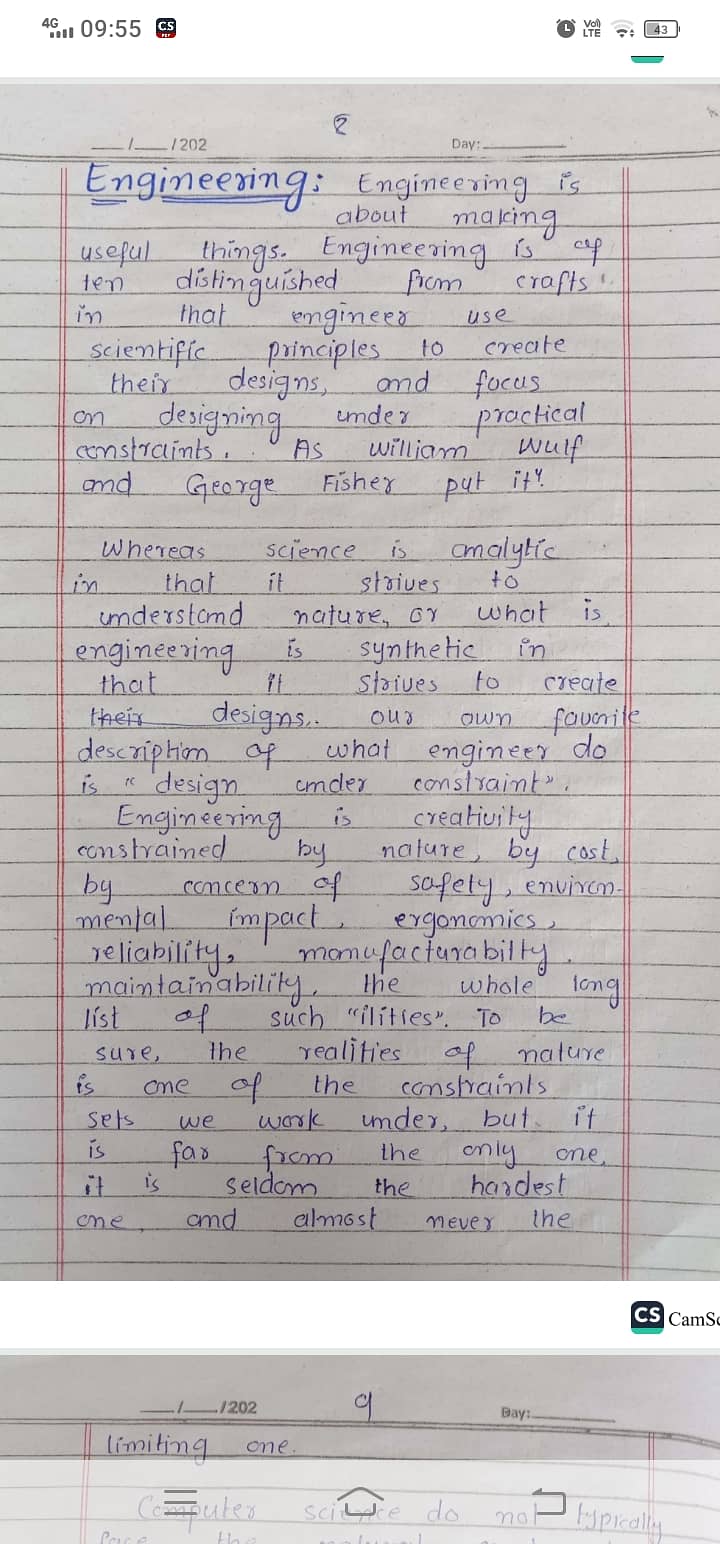 4G 09:55 CS PDF Vo)) LTE 43
2
__/__/202 Day:
Engineering: Engineering is
about making
useful things. Engineering is of
ten distinguished from crafts
in that engineers use
scientific principles to create
their designs, and focus
on designing under practical
constraints. As william Wulf
and George Fisher put it".
Whereas science is analytic
in that it strives to
understand nature, or what is,
engineering is synthetic in
that it strives to create
their designs.. our own favorite
description of what engineer do
is " design under constraint".
Engineering is creativity
constrained by nature, by cost,
by concern of safety, environ-
mental impact, ergonomics,
reliability, manufacturabilty.
maintainability, the whole long
list of such "ilities". To be
sure, the realities of nature
is one of the constraints
sets we work under, but it
is far from the only one,
it is seldom the hardest
one, and almost never the
CS CamSc
__/__/202 9 Day:
limiting one.
Computer science do not typically
face the